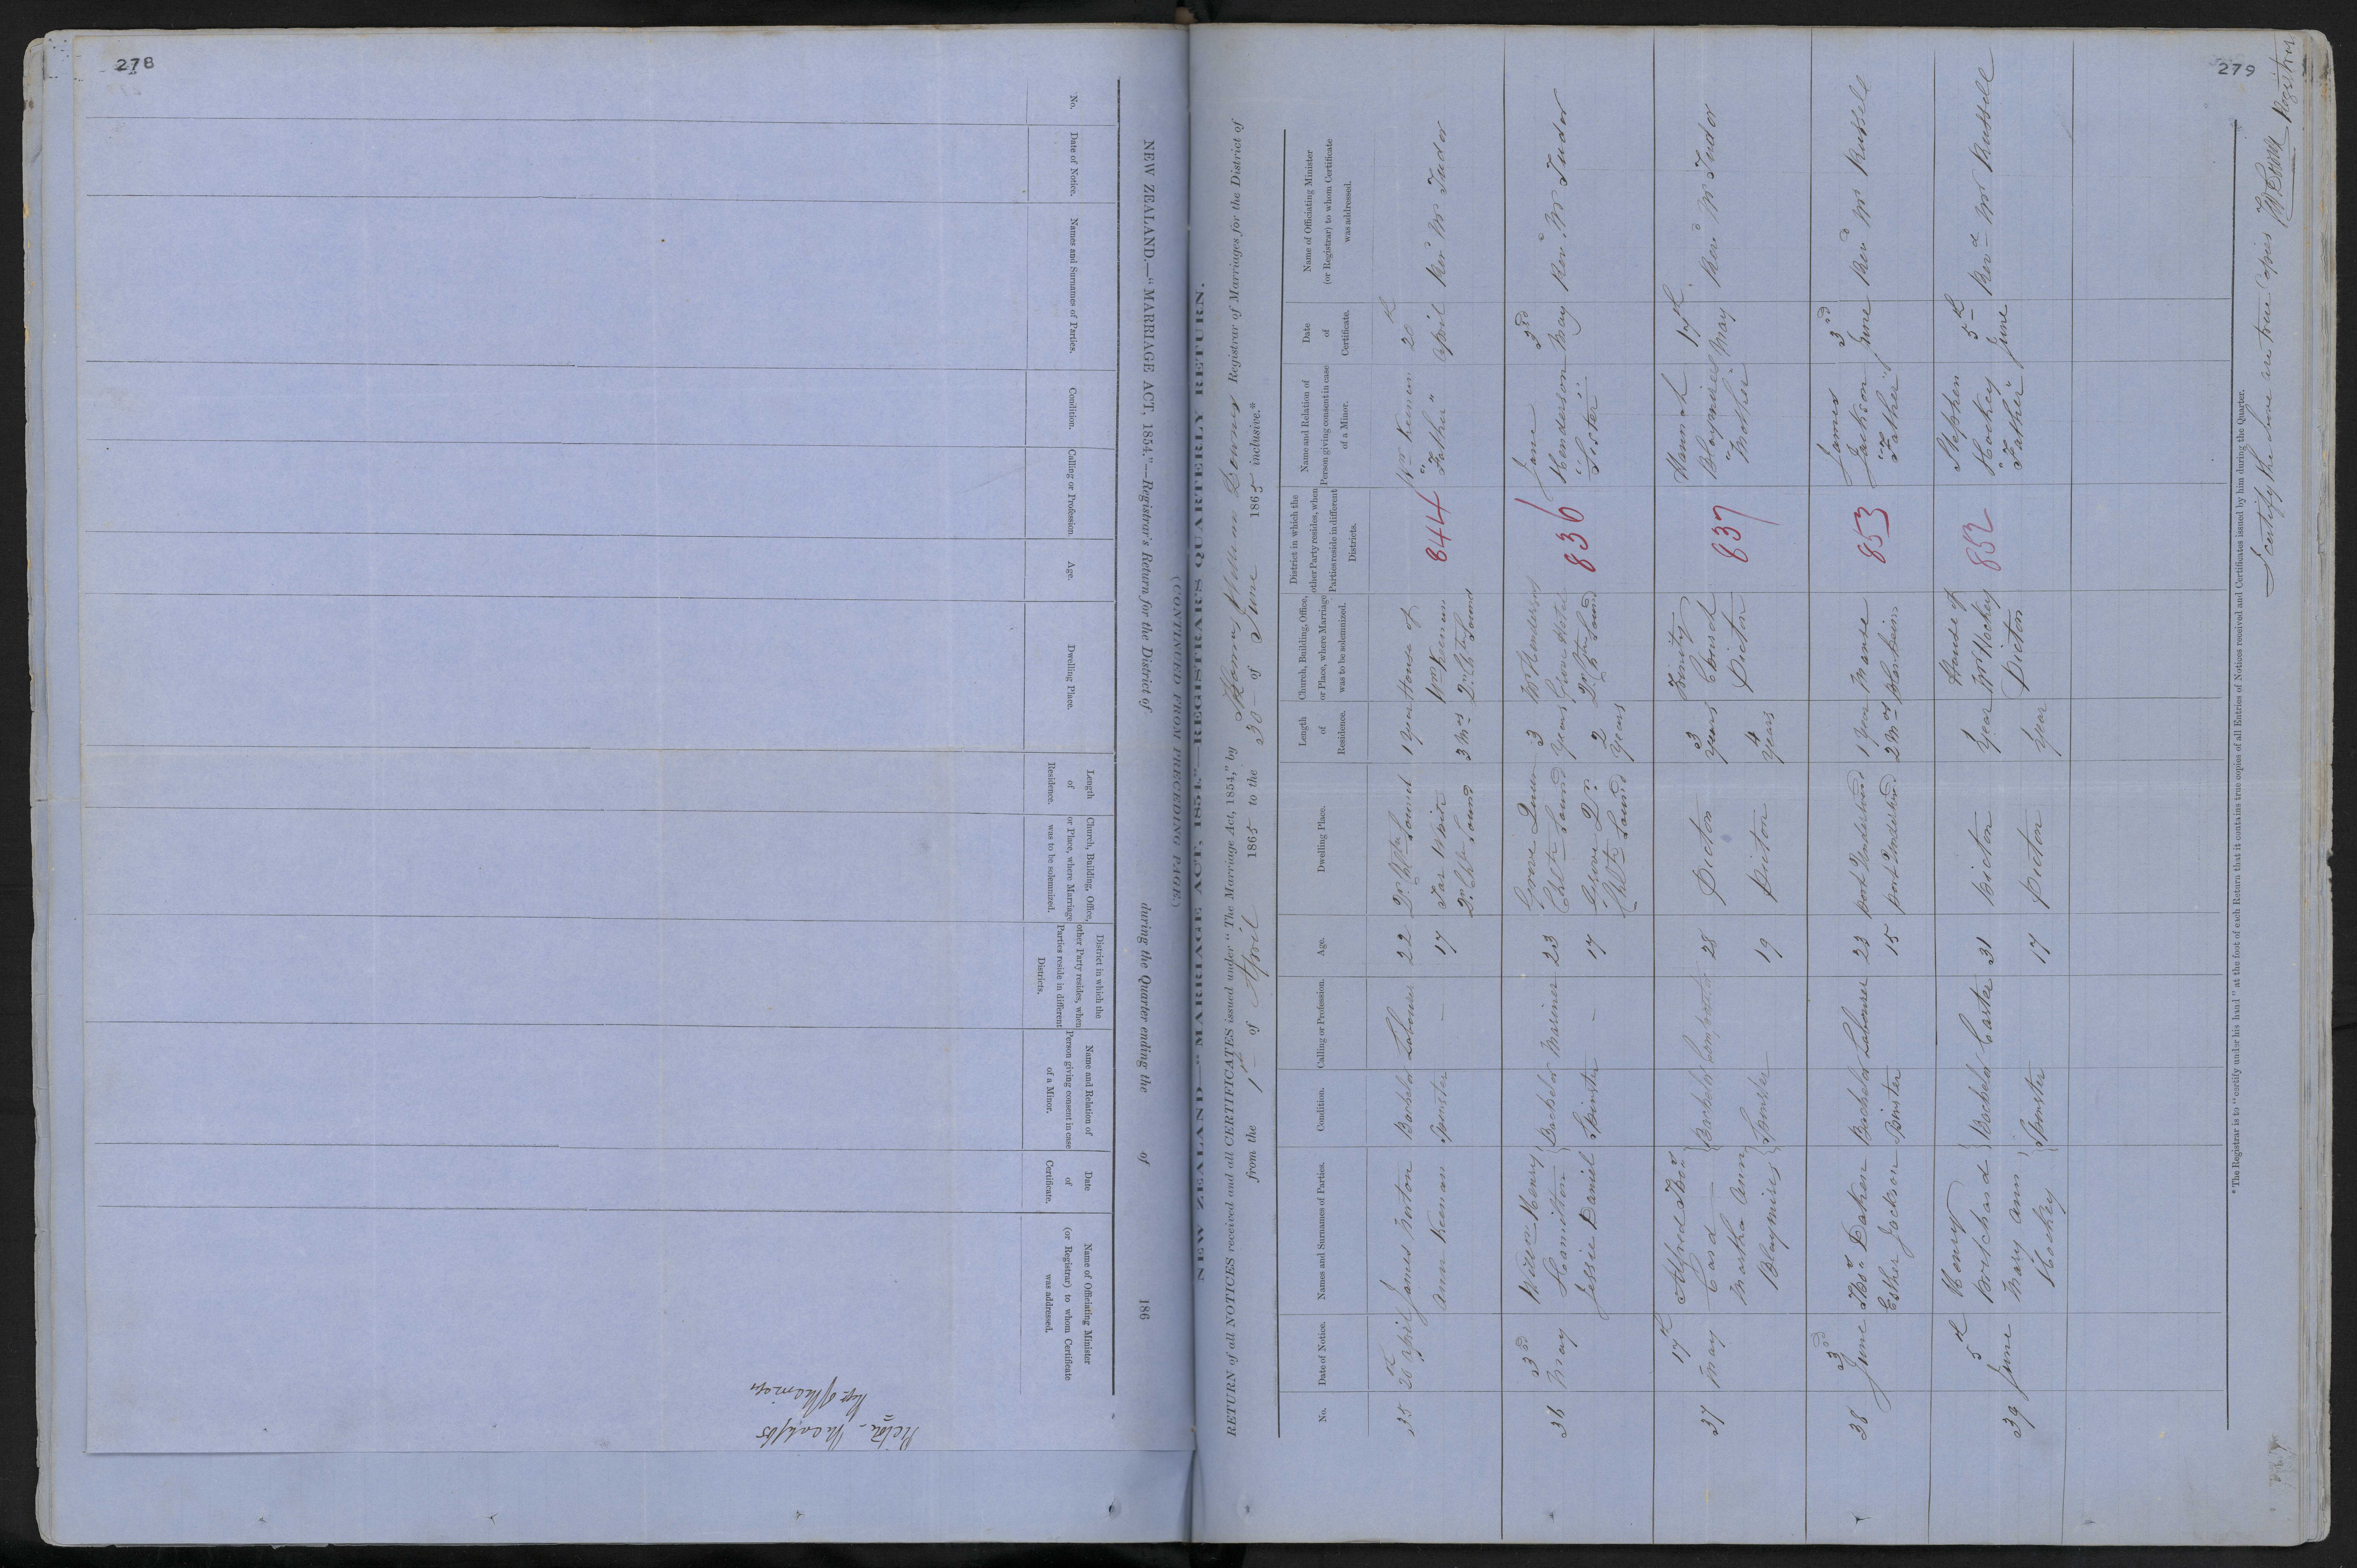 278
NEW ZEALAND.—"MARRIAGE ACT, 1854."—Registrar's Return for the District of during the Quarter ending the of 186
No.
Date of Notice.
Names and Surnames of Parties.
Condition.
Calling or Profession.
Age.
Dwelling Place.
Length
of
Residence.
Church, Building, Office,
or Place, where Marriage
was to be solemnized.
District in which the
other Party resides, when
Parties reside in different
Districts.
Name and Relation of
Person giving consent in case
of a Minor.
Date
of
Certificate.
Name of Officiating Minister
(or Registrar) to whom Certificate
was addressed.
279
(CONTINUED FROM PRECEDING PAGE.)
NEW ZEALAND—"MARRIAGE ACT, 1854."—REGISTRAR'S QUARTERLY RETURN.
RETURN of all NOTICES received and all CERTIFICATES issued under "The Marriage Act, 1854," by Thomas William Downes Registrar of Marriages for the District of
from the 1st of April 1865 to the 30 of June 1865 inclusive.*
No.
Date of Notice.
Names and Surnames of Parties.
Condition.
Calling or Profession.
Age.
Dwelling Place.
Length
of
Residence.
Church, Building, Office,
or Place, where Marriage
was to be solemnized.
District in which the
other Party resides, when
Parties reside in different
Districts.
Name and Relation of
Person giving consent in case
of a Minor.
Date
of
Certificate.
Name of Officiating Minister
(or Registrar) to whom Certificate
was addressed.
35 20th April James Norton Bachelor Labourer 22 Sound 1 year House of 844 Wm Keenan 20th April Revd Mr Tudor
Ann Keenan Spinster — 17 Sound 3 Mos Wm Keenan "Father"
36 3rd May William Henry Hamilton Bachelor Mariner 23 Grove Queen Chtte Sound 3 years Mr Hendersons Grove Hotel 836 Jane Henderson 3rd May Revd Mr Tudor
Jessie Daniel Spinster — 17 Grove Qn Chtte Sound 2 years Qn Chtte Sound "Sister"
37 17th May Alfred Card Bachelor 28 Picton 3 years Trinity Church 837 Hannah Blaymires 17th May Revd Mr Tudor
Martha Ann Blaymires Spinster 19 Picton 4 years Picton "Mother"
38 3rd June Thos Baker Bachelor Labourer 23 Port Underwood 1 year Manse 853 James Jackson 3rd June Revd Mr Russell
Esther Jackson Spinster 15 Port Underwood 2 Mos Blenheim "Father"
39 5th June Henry Pritchard Bachelor Carter 31 Picton 1 year House of Mr Hockey 852 Stephen Hockey 5th June Revd Mr Russell
Mary Ann Hockey Spinster 17 Picton 1 year Picton "Father"
*The Registrar is to "certify under his hand" at the foot of each Return that it contains true copies of all Entries of Notices received and Certificates issued by him during the Quarter.
I certify the above are true Copies Registrar